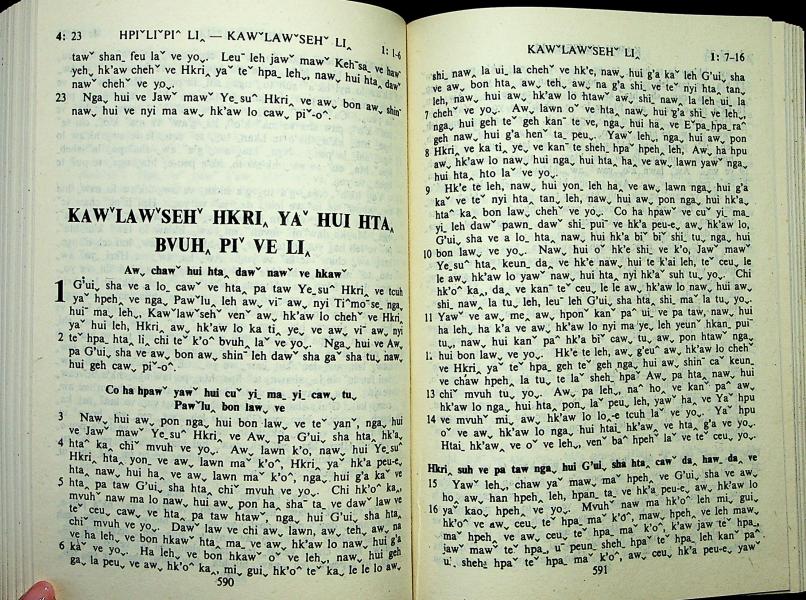 4: 23 HPIˇLIˇPIˆ LI‸ — KAWˇLAWˇSEHˇ LI‸ 1: 1-6
tawˇ shan_ feu laˇ ve yo⌄. Leuˉ leh jawˇ mawˇ Keh^sa_ ve hawˇ
yeh⌄ hk'aw chehˇ ve Hkri‸ yaˇ teˇ hpa_ leh⌄, naw⌄ hui hta‸ dawˇ
nawˇ chehˇ ve yo⌄.
23 Nga⌄ hui ve Jawˇ mawˇ Ye_suˆ Hkri‸ ve aw⌄ bon aw⌄ shinˉ
naw⌄ hui ve nyi ma aw⌄ hk'aw lo caw⌄ piˇ-oˆ.
KAWˇLAWˇSEHˇ HKRI‸ YAˇ HUI HTA‸
BVUH‸ PIˇ VE LI‸
Aw⌄ chawˇ hui hta‸ dawˇ nawˇ ve hkawˇ
1 G'ui⌄ sha ve a lo_ cawˇ ve hta‸ pa taw Ye_suˆ Hkri‸ ve tcuh
yaˇ hpeh ve nga⌄ Pawˇlu‸ leh aw⌄ viˉ aw⌄ nyi Tiˆmoˉse_ nga⌄
huiˉ ma⌄ leh⌄, Kawˇlawˇseh venˇ aw⌄ hk'aw lo chehˇ ve Hkri‸
yaˇ hui leh, Hkri‸ aw⌄ hk'aw lo ka ti‸ ye⌄ ve aw⌄ viˉ aw⌄ nyi
2 teˇ hpa_ hta‸ li‸ chi teˇ k'oˆ bvuh‸ laˇ ve yo⌄. Nga⌄ hui ve Aw⌄
pa G'ui⌄ sha ve aw⌄ bon aw⌄ shinˉ leh dawˇ sha gaˇ sha tu⌄ naw⌄
hui geh caw⌄ piˇ-oˆ.
Co ha hpawˇ yawˇ hui cuˇ yi_ ma_ yi_ caw⌄ tu⌄
Pawˇlu‸ bon law⌄ ve
3 Naw⌄ hui aw⌄ pon nga⌄ hui bon law⌄ ve teˇ yanˇ, nga⌄ hui
ve Jawˇ mawˇ Ye_suˆ Hkri‸ ve Aw⌄ pa G'ui⌄ sha hta‸ hk'a‸
4 htaˆ ka‸ chiˇ mvuh ve yo⌄. Aw⌄ lawn k'o, naw⌄ hui Ye_suˆ
Hkri‸ hta‸ yon_ ve aw⌄ lawn maˇ k'oˆ, Hkri‸ yaˇ hk'a peu-e⌄
hta‸ naw⌄ hui ha‸ ve aw⌄ lawn maˇ k'oˆ, nga⌄ hui g'a kaˇ ve
5 hta‸ pa taw G'ui⌄ sha hta‸ chiˇ mvuh ve yo⌄. Chi hk'oˆ ka‸,
mvuhˇ naw ma lo naw⌄ hui aw⌄ pon ha_ shaˉ ta_ ve dawˇ law ve
teˇ ceu⌄ caw⌄ ve hta‸ pa taw htawˇ, nga⌄ hui G'ui⌄ sha hta‸
chiˇ mvuh ve yo⌄. Dawˇ law ve chi aw⌄ lawn, aw⌄ teh⌄ aw⌄ na
ve ha leh⌄ ve bon hkawˇ hta‸ ma⌄ ve aw⌄ hk'aw lo naw⌄ hui g'a
6 kaˇ ve yo⌄. Ha leh⌄ ve bon hkawˇ oˇ ve leh⌄, naw⌄ hui geh
ga⌄ la peu⌄ ve aw⌄ hk'oˆ ka‸, mi_ gui⌄ hk'oˆ teˇ ka⌄ le le lo aw⌄
590
KAWˇLAWˇSEHˇ LI‸ 1: 7-16
shi_ naw⌄ la ui_ la chehˇ ve hk'e, naw⌄ hui g'a kaˇ leh G'ui⌄ sha
ve aw⌄ bon hta‸ aw⌄ teh⌄ aw⌄ na g'a shi_ ve teˇ nyi hta‸ tan_
leh, naw⌄ hui aw⌄ hk'aw lo htawˇ aw⌄ shi_ naw⌄ la leh ui_ la
7 chehˇ ve yo⌄. Aw⌄ lawn oˇ ve hta‸ naw⌄ hui g'a shi_ ve leh⌄
nga⌄ hui geh teˇ geh kanˉ te ve, nga⌄ hui ha‸ ve Eˇpa_hpa_raˆ
geh naw⌄ hui g'a henˇ ta_ peu⌄. Yawˇ leh⌄, nga⌄ hui aw⌄ pon
8 Hkri‸ ve ka ti‸ ye⌄ ve kanˉ te sheh_ hpaˇ hpeh leh, Aw⌄ ha hpu
aw⌄ hk'aw lo naw⌄ hui nga⌄ hui hta‸ ha‸ ve aw⌄ lawn yawˇ nga⌄
hui hta‸ hto laˇ ve yo⌄.
9 Hk'e te leh, naw⌄ hui yon_ leh ha‸ ve aw⌄ lawn nga⌄ hui g'a
kaˇ ve teˇ nyi hta‸ tan_ leh, naw⌄ hui aw⌄ pon nga⌄ hui hk'a‸
htaˆ ka‸ bon law⌄ chehˇ ve yo⌄. Co ha hpawˇ ve cuˇ yi_ ma_
yi_ leh dawˇ pawn_ dawˇ shi_ puiˉ ve hk'a peu-e⌄ aw⌄ hk'aw lo,
G'ui⌄ sha ve a lo_ hta‸ naw⌄ hui hk'a biˇ biˇ shi_ tu⌄ nga⌄ hui
10 bon law⌄ ve yo⌄. Naw⌄ hui oˇ hk'e shi_ ve k'o, Jawˇ mawˇ
Ye_suˆ hta‸ keun_ da‸ ve hk'e naw⌄ hui te k'ai leh, teˇ ceu⌄ le
le aw⌄ hk'aw lo yawˇ naw⌄ hui hta‸ nyi hk'aˇ suh tu⌄ yo⌄. Chi
hk'oˆ ka‸, da‸ ve kanˉ teˇ ceu⌄ le le aw⌄ hk'aw lo naw⌄ hui aw⌄
shi_ naw⌄ la tu⌄ leh, leuˉ leh G'ui⌄ sha hta‸ shi_ maˇ la tu⌄ yo⌄.
11 Yawˇ ve aw⌄ me⌄ aw⌄ hponˇ kanˉ paˆ ui_ ve pa taw, naw⌄ hui
ha leh⌄ ha k'a ve aw⌄ hk'aw lo nyi ma yeˇ leh yeunˇ hkan_ puiˉ
tu⌄, naw⌄ hui kanˉ paˆ hk'a biˇ caw⌄ tu⌄ aw⌄ pon htawˇ nga⌄
1. hui bon law⌄ ve yo⌄. Hk'e te leh, aw⌄ g'euˆ aw⌄ hk'aw lo chehˇ
ve Hkri‸ yaˇ teˇ hpa_ geh teˇ geh nga⌄ hui aw⌄ shinˉ caˇ keun_
ve chaw hpeh⌄ la tu⌄ te laˇ sheh_ hpaˇ Aw⌄ pa hta‸ naw⌄ hui
13 chiˇ mvuh tu⌄ yo⌄. Aw⌄ pa leh⌄, naˆ ho‸ ve kanˉ paˆ aw⌄
hk'aw lo nga⌄ hui hta‸ pon_ laˇ peu⌄ leh, yawˇ ha‸ ve Yaˇ hpu
14 ve mvuhˇ mi_ aw⌄ hk'aw lo lo⌄-e tcuh laˇ ve yo⌄. Yaˇ hpu
oˇ ve aw⌄ hk'aw lo nga⌄ hui htai_ hk'aw‸ ve hta‸ g'a ve yo⌄.
Htai_ hk'aw‸ ve oˇ ve leh⌄, venˇ baˆ hpehˇ laˇ ve teˇ ceu⌄ yo⌄.
Hkri‸ suh ve pa taw nga⌄ hui G'ui⌄ sha hta‸ cawˇ da‸ haw_ da‸ ve
15 Yawˇ leh⌄, chaw yaˇ maw⌄ maˇ hpeh⌄ ve G'ui⌄ sha ve aw⌄
ho‸ aw⌄ han hpeh⌄ leh, hpan_ ta_ ve hk'a peu-e⌄ aw⌄ hk'aw lo
16 yaˇ kao⌄ hpeh⌄ ve yo⌄. Mvuhˇ naw ma hk'oˆ leh mi_ gui⌄
hk'oˆ ve aw⌄ ceu⌄ teˇ hpa_ maˇ k'oˆ, maw⌄ hpeh⌄ ve leh maw⌄
maˇ hpeh⌄ ve aw⌄ ceu⌄ teˇ hpa_ maˇ k'oˆ, k'aw jaw teˇ hpa_,
jawˇ mawˇ teˇ hpa_, uˉ peun_ sheh_ hpaˇ teˇ hpa_ leh kanˉ paˆ
u_ sheh_ hpaˇ teˇ hpa_ maˇ k'oˆ, aw⌄ ceu⌄ hk'a peu-e⌄ yawˇ
591